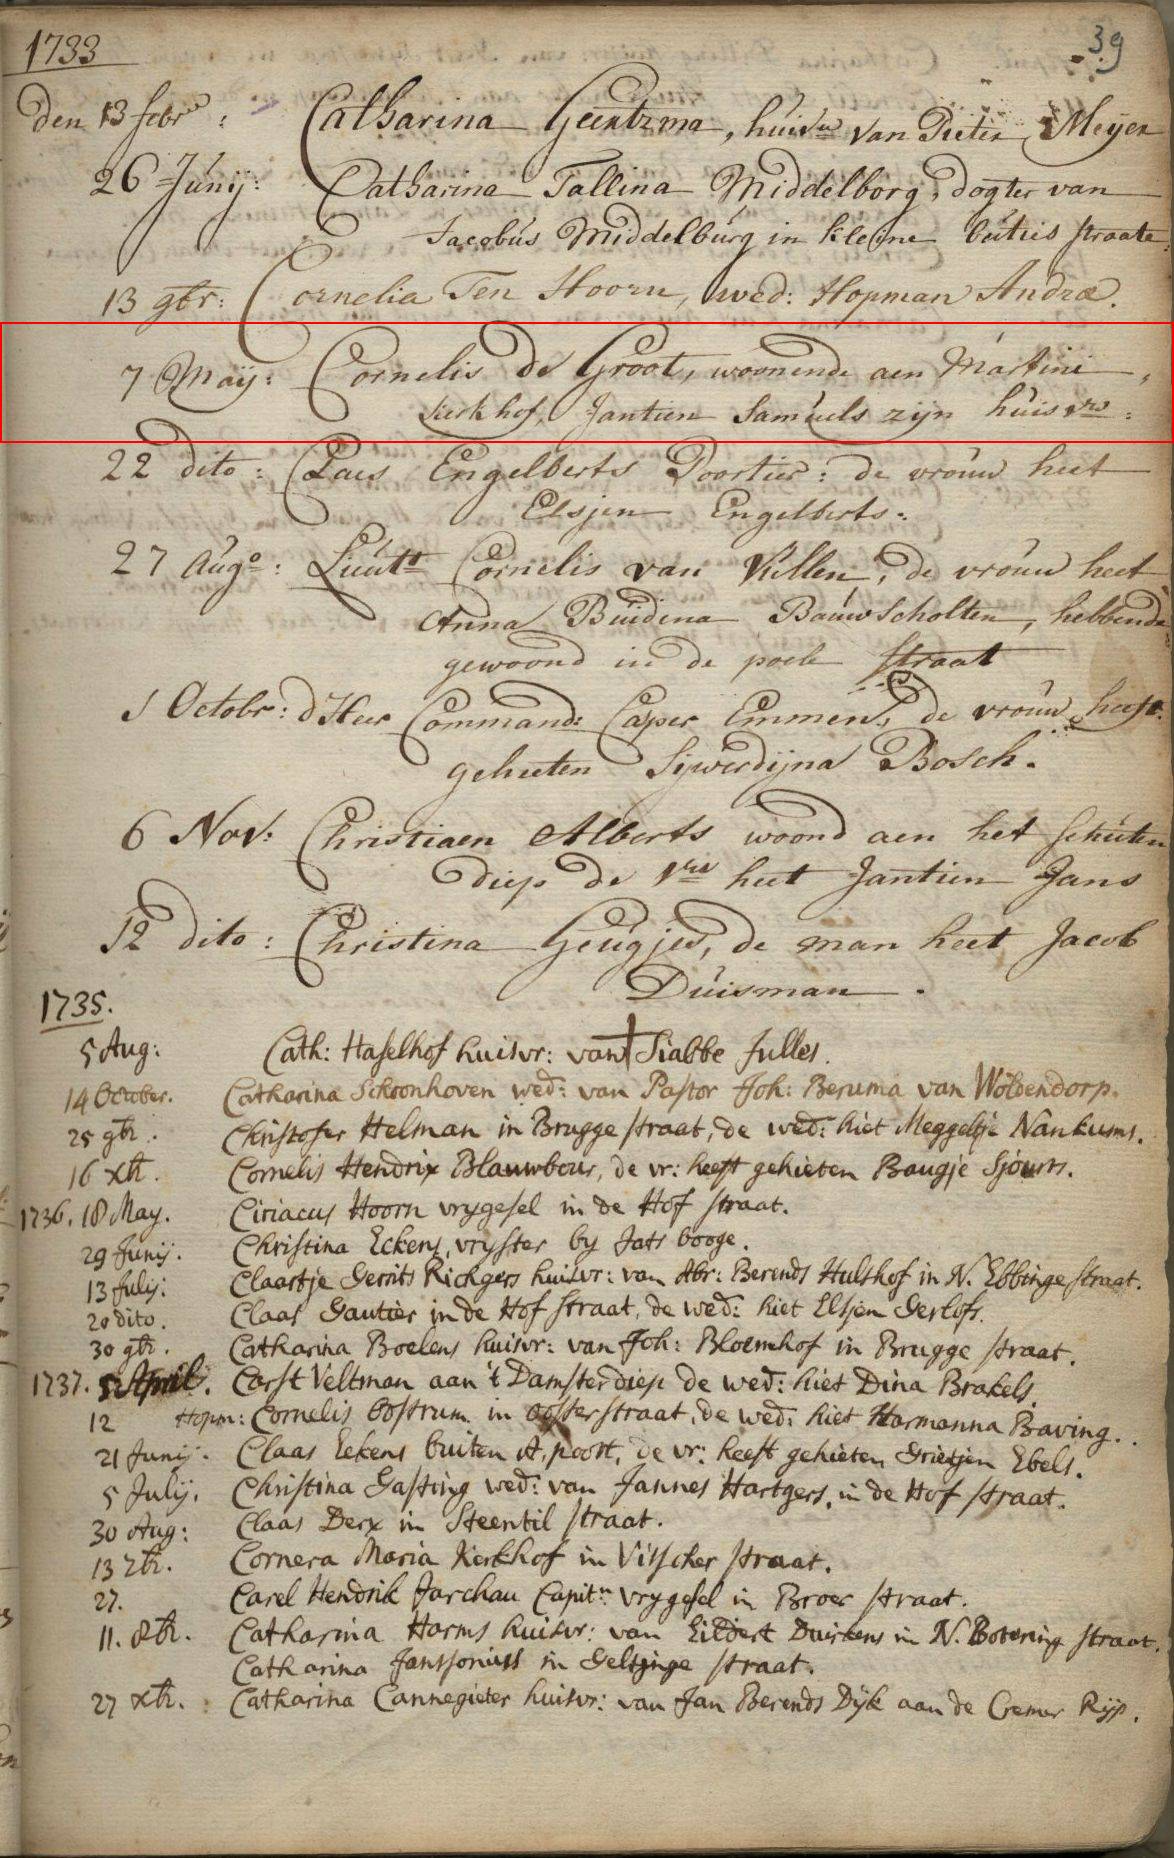 1733
39
den 13 febr: Catharina Geertzma, huisvr van Pieter Meijer
26 Junij: Catharina Tallina Middelborg, dogter van
Jacobús Middelbúrg in kleine búties straate
13 9br: Cornelia Ten Hoorn, wed: Hopman Andræ.
7 Maij: Cornelis de Groot, woonende aen Martini
kerkhof, Jantien Samúels zijn húisvro:
22 dito: Claes Engelberts Poortier: de vroúw heet
Elsjen Engelberts.
27 Aúgo: Lieútt Cornelis van Villen, de vroúw heet
Anna Búidina Baúwscholten, hebbende
gewoond in de poele straat
1 Octobr: d'Heer Command: Caper Emmen, de vroúw heeft
gehieten Sijwerdijna Bosch.
6 Nov: Christiaen Alberts woond aen het schúiten
diep de vre heet Jantien Jans
12 dito: Christina Geúgjes, de man heet Jacob
Dúisman.
1735.
5 Aug: Cath: Haselhof huisvr: van Siabbe Julles.
14 October. Catharina Schoonhoven wed: van Pastor Joh: Beruma van Woldendorp.
25 9br. Christofer Helman in Brugge straat, de wed: hiet Meggeltje Nankums.
16 xbr. Cornelis Hendrix Blauwbour, de vr: heeft gehieten Baugje Sjourts.
1736. 18 May. Ciriacus Hoorn vrygesel in de Hof straat.
29 Junij. Christina Eckens, vryster by Jats booge.
13 Julij: Claartje Gerrits Richgers huisvr: van Abr: Berends Hulshof in N. Ebbinge straat.
20 dito. Claas Gautier in de Hof straat, de wed: hiet Elsjen Gerlofs.
30 9br. Catharina Boelens huisvr: van Joh: Bloemhof in Brugge straat.
1737. 5 April. Carst Veltman aan 't Damsterdiep de wed: hiet Dina Brakels.
12 Hopm: Cornelis Bostrum in Oosterstraat, de wed: hiet Harmanna Baving.
21 Junij. Claas Eekens buiten A. poort, de vr: heeft gehieten Grietjen Ebels.
5 Julij. Christina Gasting wed: van Jannes Hartgers, in de Hof straat.
30 Aug: Claas Derx in Steentil straat.
13 7br. Cornera Maria Kerkhof in Visscher straat.
27. Carel Hendrik Jarchau Capitn vrygesel in Broer straat.
11. 8br. Catharina Harms huisvr: van Eildert Duirkens in N. Botering straat.
Catharina Janssonius in Gelkinge straat.
27 xbr. Catharina Cannegieter huisvr: van Jan Berends Dijk aan de Cremer Rijp.